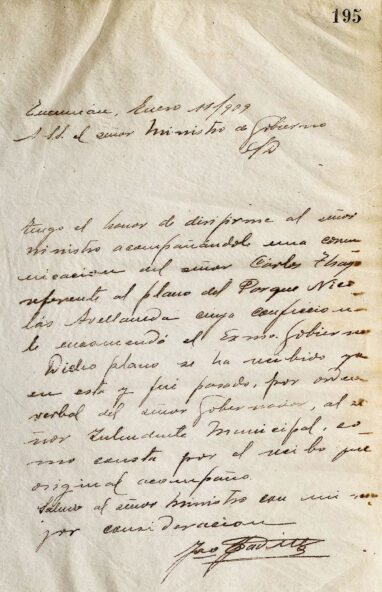 195
Tucumán, Enero 11/909
A S.S. el señor Ministro de Gobierno
S/D
Tengo el honor de dirijirme al señor
ministro acompañándole una comu
nicacion del señor Carlos Thays
referente al plano del Parque Nico
lás Avellaneda cuya confeccion
le encomendó el Exmo. Gobierno
Dicho plano se ha recibido ya
en esta y fué pasado, por orden
verbal del señor Gobernador, al se
ñor Intendente Municipal, co
mo consta por el recibo que
original acompaño.
Saludo al señor ministro con mi me
jor consideracion
Padilla